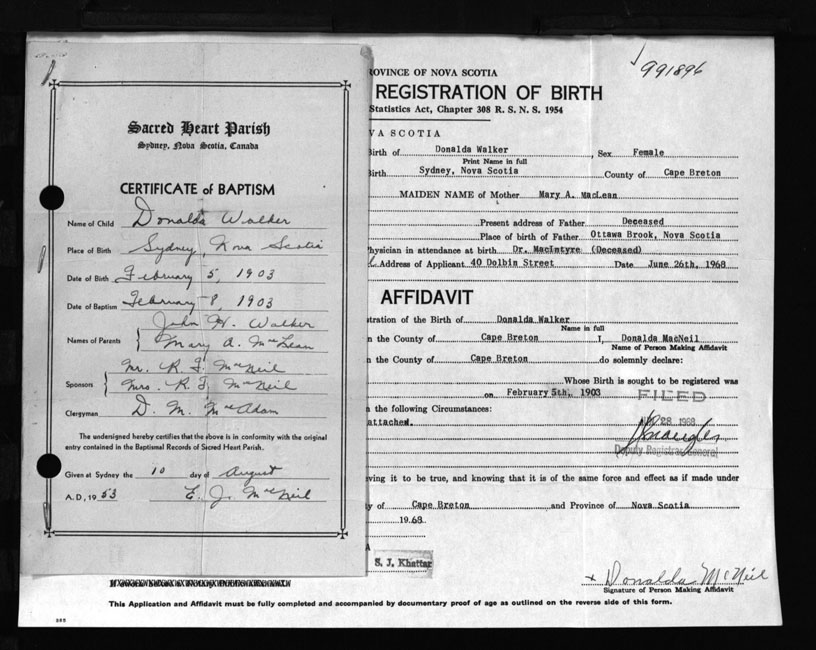 Sacred Heart Parish
Sydney, Nova Scotia, Canada
CERTIFICATE of BAPTISM
Name of Child Donalda Walker
Place of Birth Sydney, Nova Scotia
Date of Birth February 5, 1903
Date of Baptism February 8, 1903
John H. Walker
Names of Parents Mary A. McLean
Mr. R. J. McNeil
Sponsors Mrs. R. J. McNeil
Clergyman D. M. McAdam
The undersigned hereby certifies that the above is in conformity with the original
entry contained in the Baptismal Records of Sacred Heart Parish.
Given at Sydney the 10 day of August
A.D., 1953 E. J. McNeil
991896
ROVINCE OF NOVA SCOTIA
REGISTRATION OF BIRTH
Statistics Act, Chapter 308 R. S. N. S. 1954
VA SCOTIA
Birth of Donalda Walker, Sex Female
Print Name in full
Birth Sydney, Nova Scotia County of Cape Breton
MAIDEN NAME of Mother Mary A. MacLean
Present address of Father Deceased
Place of birth of Father Ottawa Brook, Nova Scotia
Physician in attendance at birth Dr. MacIntyre (Deceased)
Address of Applicant 40 Dolbin Street Date June 26th, 1968
AFFIDAVIT
stration of the Birth of Donalda Walker
Name in full
n the County of Cape Breton I, Donalda MacNeil
Name of Person Making Affidavit
n the County of Cape Breton do solemnly declare:
Whose Birth is sought to be registered was
on February 5th, 1903
FILED
n the following Circumstances:
attached.
28 1968
Deputy Registrar General
eving it to be true, and knowing that it is of the same force and effect as if made under
y of Cape Breton and Province of Nova Scotia
1968
A
S. J. Khattar
Donalda McNeil
Signature of Person Making Affidavit
This Application and Affidavit must be fully completed and accompanied by documentary proof of age as outlined on the reverse side of this form.